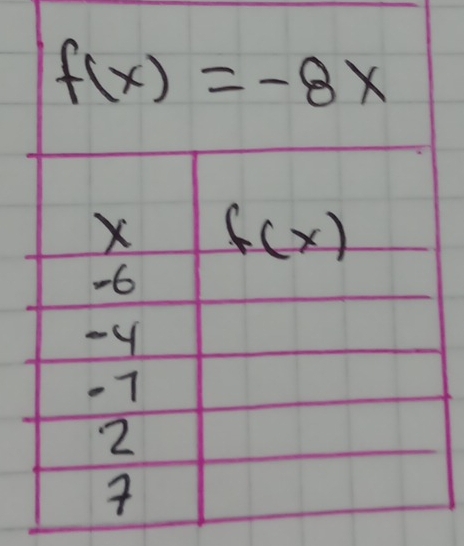 f(x) = -8x
x f(x)
-6
-4
-1
2
7